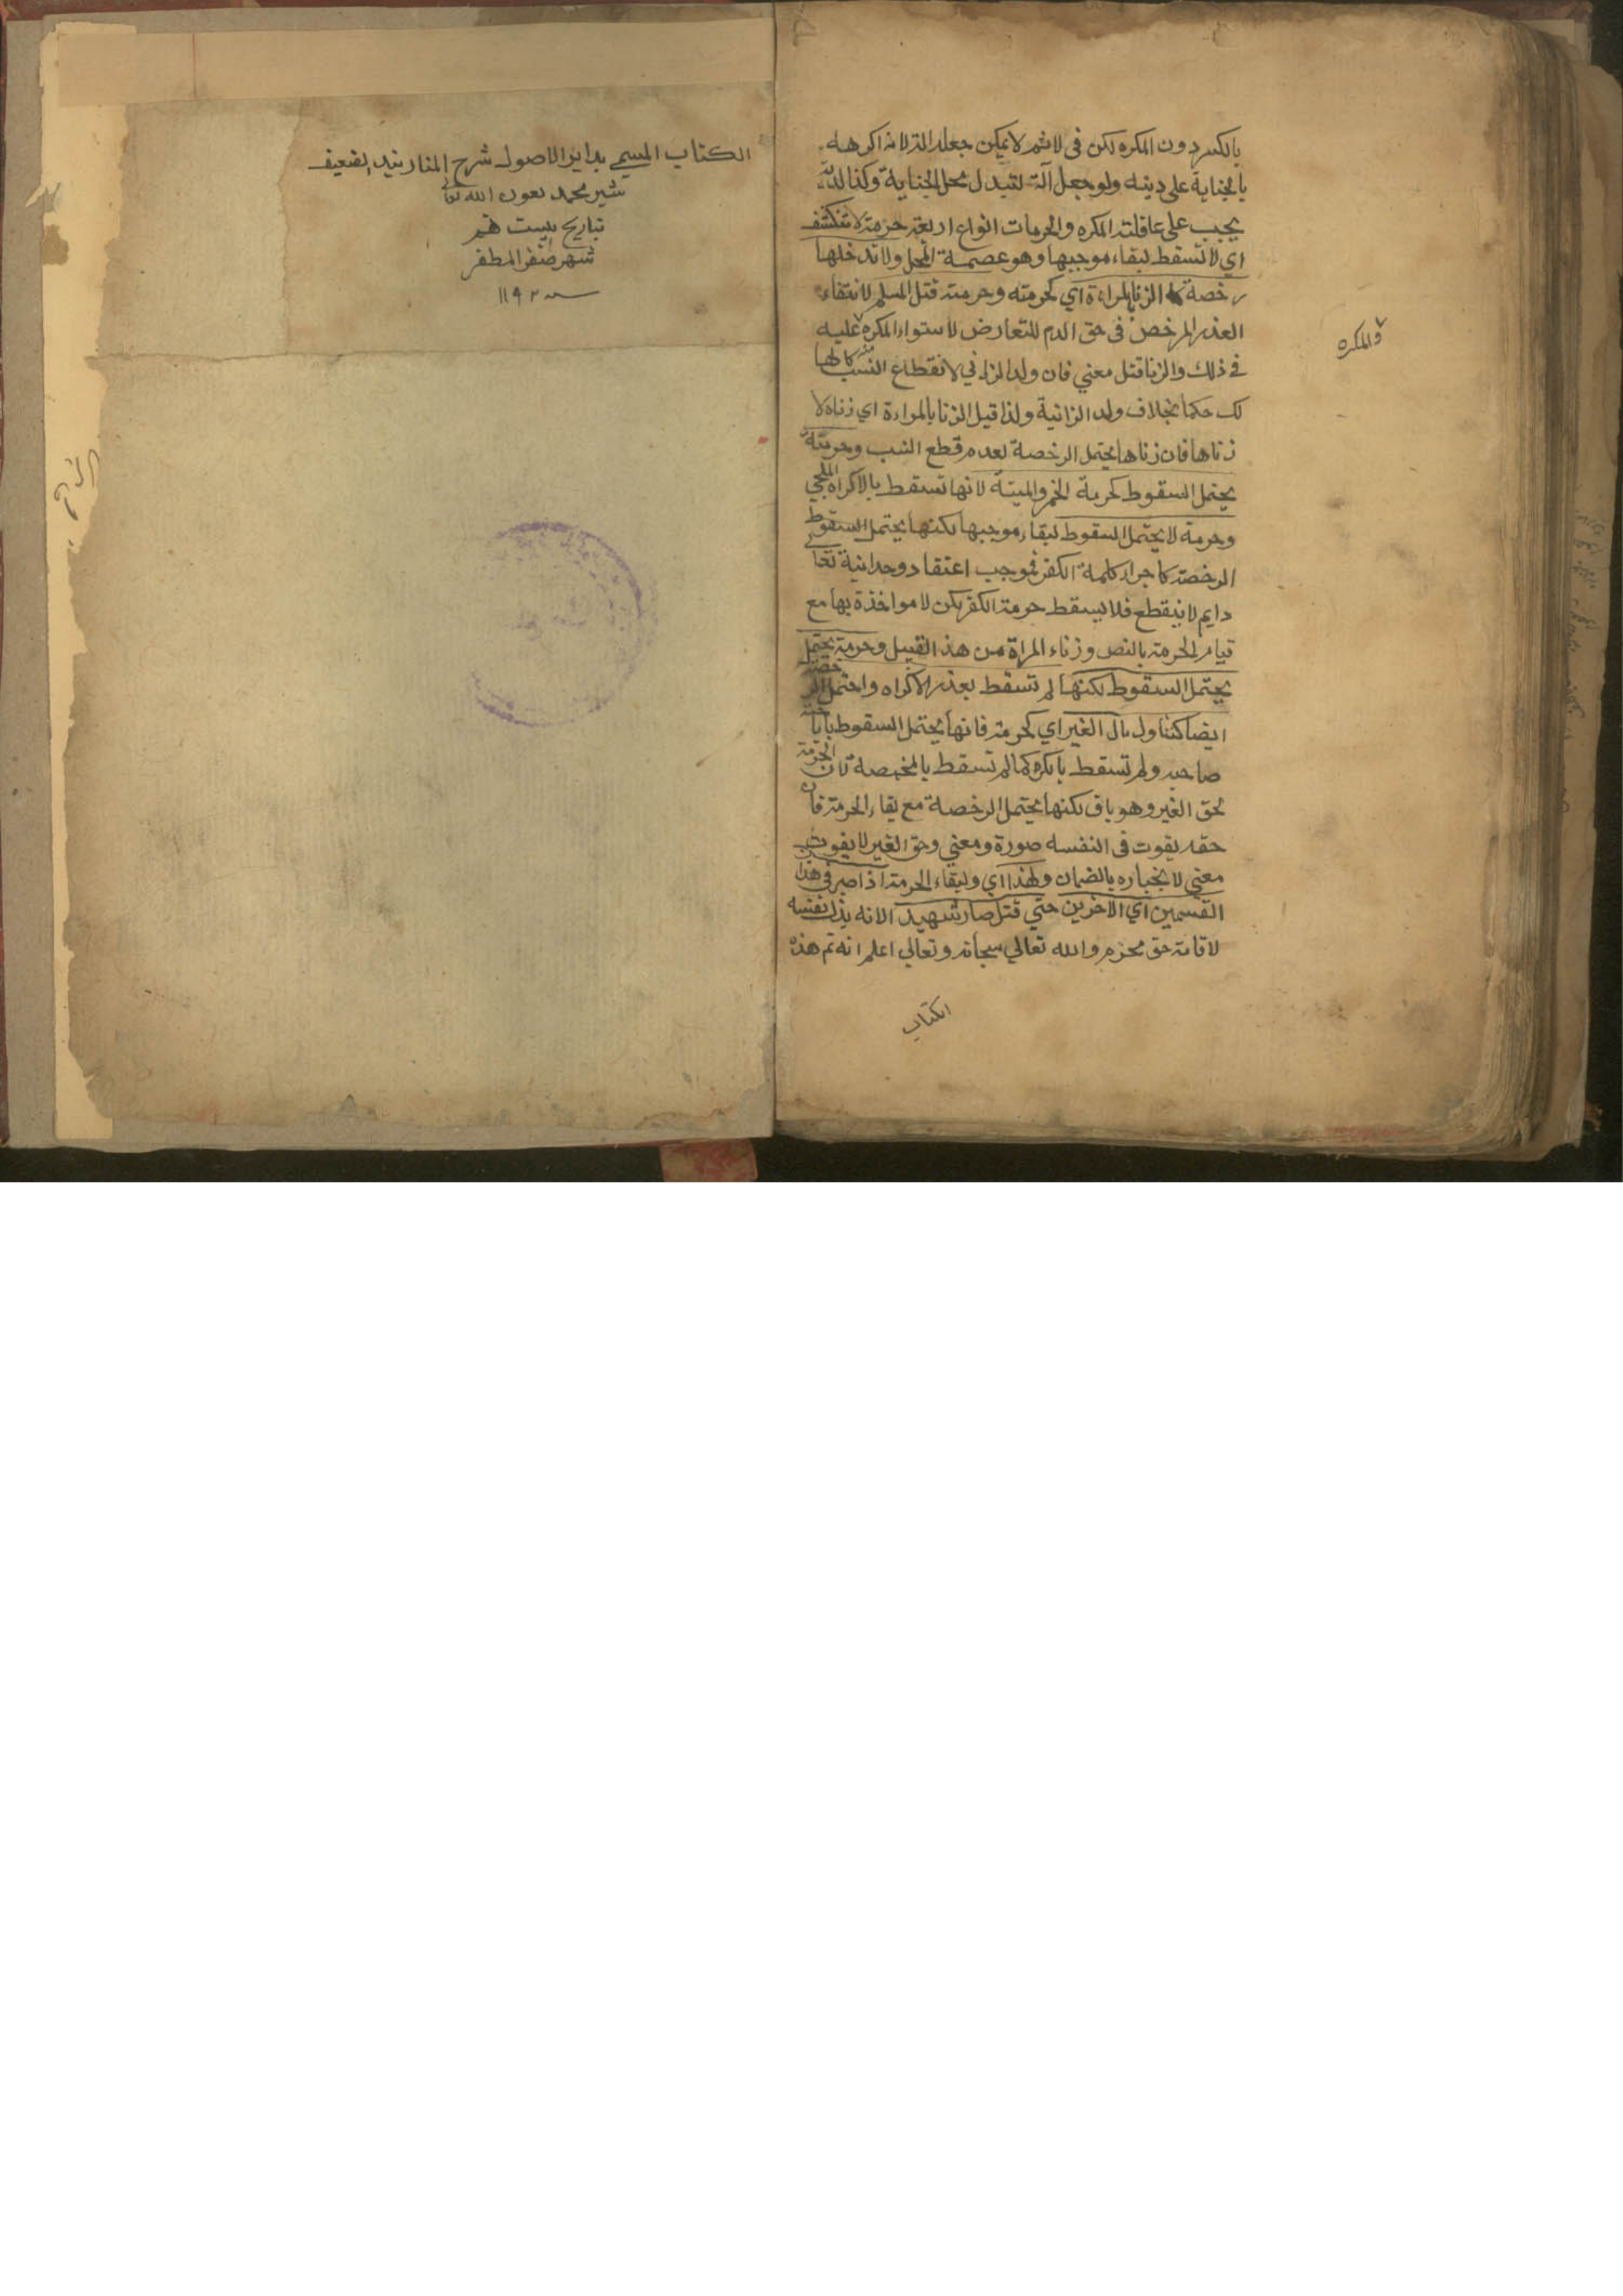 بالكسر دون المكره لكن في الاثم لا يمكن جعله الة لانه اكرهه
بالجناية على دينه ولو جعل آلة لتبدل محل الجناية وكذا الدية
يجب على عاقلة المكره والحرمات انواع اربعة حرمة لا تنكشف
اي لا تسقط لبقاء موجبها وهو عصمة المحل ولا تدخلها
رخصة كالزنا بالمراءة اي كحرمته وحرمة قتل المسلم لانتفاء
العذر المرخص في حق الدم للتعارض لاستواء المكره عليه
والمكره
في ذلك والزنا قتل معني فان ولد الزاني لانقطاع النسب منه كا
لك حكما بخلاف ولد الزانية ولذا قيل الزنا بالمراءة اي زناه لا
زناها فان زناها يحتمل الرخصة لعدم قطع النسب وحرمة
يحتمل السقوط كحرمة الخمر والميتة لانها تسقط بالاكراه الملجي
وحرمة لا يحتمل السقوط لبقاء موجبها لكنها يحتمل السقوط
الرخصة كاجراء كلمة الكفر فموجب اعتقاد وحدانية تعا
دايم لا ينقطع فلا يسقط حرمة الكفر لكن لا مواخذة بها مع
قيام الحرمة بالنص وزناء المراة من هذا القبيل وحرمة يحتمل
يحتمل السقوط لكنها لم تسقط بعذر الاكراه واحتمل الرخصة
ايضا كتناول مال الغير اي كحرمة فانها يحتمل السقوط باباحة
صاحبه ولم تسقط بالكره كما لم تسقط بالمخمصة لان الحرمة
لحق الغير وهو باق لكنها يحتمل الرخصة مع بقاء الحرمة فان
حقه يفوت في النفسه صورة ومعني وحق الغير لا يفوت
معني لانجباره بالضمان ولهذا اي ولبقاء الحرمة اذا صبر في هذا
القسمين اي الاخرين حتي قتل صار شهيد الانه بذل نفسه
لاقامة حق محترم والله تعالي سبحانه وتعالي اعلم انه تم هذه
الكتاب
الكتاب المسمي بداير الاصول شرح المنار بيد الضعيف
شير محمد بعون الله تعالي
بتاريخ بيست هفتم
شهر صفر المظفر
سنه ١١٩٢